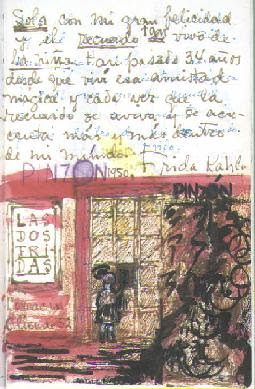 Sola con mi gran felicidad
y el recuerdo tan vivo de
la niña. Han pasado 34 años
desde que viví esa amistad
mágica y cada vez que la
recuerdo se aviva y se acre-
centa más y más dentro
de mi mundo.
PINZÓN 1950. Frida Kahlo
PINZON
LAS
DOS
FRIDAS